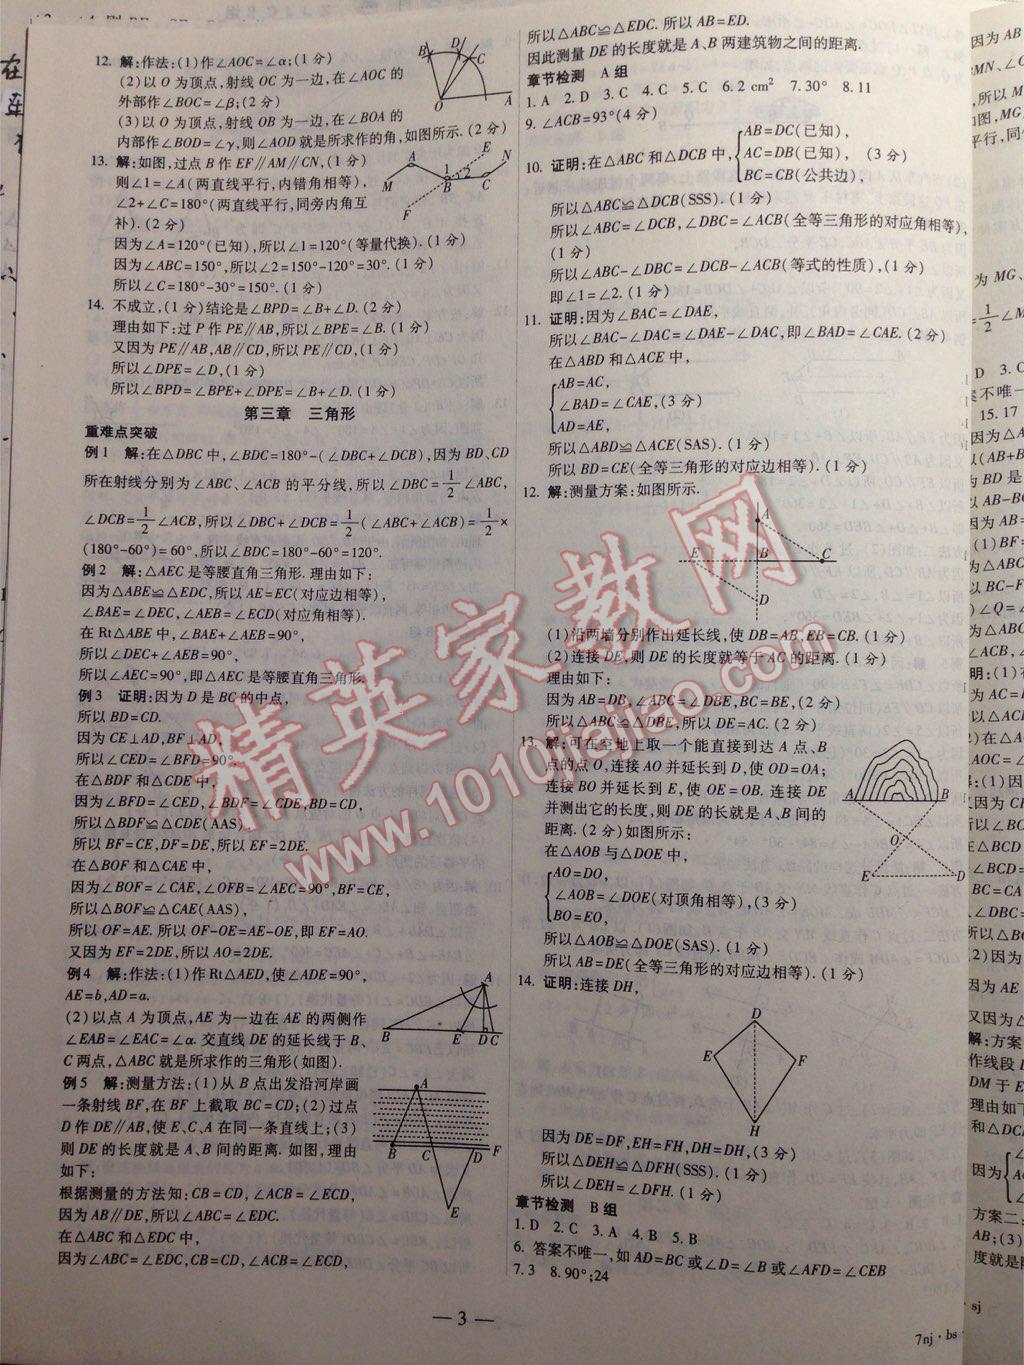 12. 解:作法:(1)作∠AOC=∠α;(1分)
(2)以O为顶点,射线OC为一边,在∠AOC的
外部作∠BOC=∠β;(2分)
(3)以O为顶点,射线OB为一边,在∠BOA的
内部作∠BOD=∠γ,则∠AOD就是所求作的角,如图所示.(2分)
13. 解:如图,过点B作EF∥AM∥CN,(1分)
则∠1=∠A(两直线平行,内错角相等),
∠2+∠C=180°(两直线平行,同旁内角互
补).(2分)
因为∠A=120°(已知),所以∠1=120°(等量代换).(1分)
因为∠ABC=150°,所以∠2=150°-120°=30°.(1分)
所以∠C=180°-30°=150°.(1分)
14. 不成立,(1分)结论是∠BPD=∠B+∠D.(2分)
理由如下:过P作PE∥AB,所以∠BPE=∠B.(1分)
又因为PE∥AB,AB∥CD,所以PE∥CD.(1分)
所以∠DPE=∠D,(1分)
所以∠BPD=∠BPE+∠DPE=∠B+∠D.(1分)
第三章 三角形
重难点突破
例1 解:在△DBC中,∠BDC=180°-(∠DBC+∠DCB),因为BD、CD
所在射线分别为∠ABC、∠ACB的平分线,所以∠DBC=1/2∠ABC,
∠DCB=1/2∠ACB,所以∠DBC+∠DCB=1/2(∠ABC+∠ACB)=1/2×
(180°-60°)=60°,所以∠BDC=180°-60°=120°.
例2 解:△AEC是等腰直角三角形.理由如下:
因为△ABE≌△EDC,所以AE=EC(对应边相等),
∠BAE=∠DEC,∠AEB=∠ECD(对应角相等).
在Rt△ABE中,∠BAE+∠AEB=90°,
所以∠DEC+∠AEB=90°,
所以∠AEC=90°,即△AEC是等腰直角三角形.
例3 证明:因为D是BC的中点,
所以BD=CD.
因为CE⊥AD,BF⊥AD,
所以∠CED=∠BFD=90°.
在△BDF和△CDE中,
因为∠BFD=∠CED,∠BDF=∠CDE,BD=CD,
所以△BDF≌△CDE(AAS).
所以BF=CE,DF=DE,所以EF=2DE.
在△BOF和△CAE中,
因为∠BOF=∠CAE,∠OFB=∠AEC=90°,BF=CE,
所以△BOF≌△CAE(AAS),
所以OF=AE.所以OF-OE=AE-OE,即EF=AO.
又因为EF=2DE,所以AO=2DE.
例4 解:作法:(1)作Rt△AED,使∠ADE=90°,
AE=b,AD=a.
(2)以点A为顶点,AE为一边在AE的两侧作
∠EAB=∠EAC=∠α.交直线DE的延长线于B、
C两点,△ABC就是所求作的三角形(如图).
例5 解:测量方法:(1)从B点出发沿河岸画
一条射线BF,在BF上截取BC=CD;(2)过点
D作DE∥AB,使E、C、A在同一条直线上;(3)
则DE的长度就是A、B间的距离.如图,理由
如下:
根据测量的方法知:CB=CD,∠ACB=∠ECD,
因为AB∥DE,所以∠ABC=∠EDC.
在△ABC和△EDC中,
因为∠ABC=∠EDC,CB=CD,∠ACB=∠ECD,
所以△ABC≌△EDC.所以AB=ED.
因此测量DE的长度就是A、B两建筑物之间的距离.
章节检测 A组
1.A 2.D 3.C 4.C 5.C 6.2 cm² 7.30° 8.11
9. ∠ACB=93°(4分)
10. 证明:在△ABC和△DCB中,
AB=DC(已知),
AC=DB(已知), (3分)
BC=CB(公共边),
所以△ABC≌△DCB(SSS).(1分)
所以∠ABC=∠DCB,∠DBC=∠ACB(全等三角形的对应角相等),
(1分)
所以∠ABC-∠DBC=∠DCB-∠ACB(等式的性质),(1分)
即∠1=∠2.(1分)
11. 证明:因为∠BAC=∠DAE,
所以∠BAC-∠DAC=∠DAE-∠DAC,即∠BAD=∠CAE.(2分)
在△ABD和△ACE中,
AB=AC,
∠BAD=∠CAE,(3分)
AD=AE,
所以△ABD≌△ACE(SAS).(1分)
所以BD=CE(全等三角形的对应边相等).(1分)
12. 解:测量方案:如图所示.
(1)沿两墙分别作出延长线,使DB=AB,EB=CB.(1分)
(2)连接DE,则DE的长度就等于AC的距离.(1分)
理由如下:
因为AB=DB,∠ABC=∠DBE,BC=BE,(2分)
所以△ABC≌△DBE,所以DE=AC.(2分)
13. 解:可在空地上取一个能直接到达A点、B
点的点O,连接AO并延长到D,使OD=OA;
连接BO并延长到E,使OE=OB.连接DE
并测出它的长度,则DE的长就是A、B间的
距离.(2分)如图所示:
在△AOB与△DOE中,
AO=DO,
∠AOB=∠DOE(对顶角相等),(3分)
BO=EO,
所以△AOB≌△DOE(SAS).(1分)
所以AB=DE(全等三角形的对应边相等).(1分)
14. 证明:连接DH,
因为DE=DF,EH=FH,DH=DH,(3分)
所以△DEH≌△DFH(SSS).(1分)
所以∠DEH=∠DFH.(1分)
章节检测 B组
1.D 2.C 3.A 4.B 5.B
6. 答案不唯一,如AD=BC或∠D=∠B或∠AFD=∠CEB
7.3 8.90°;24
— 3 —
7nj·bs
精英家教网
www.1010jiajiao.com